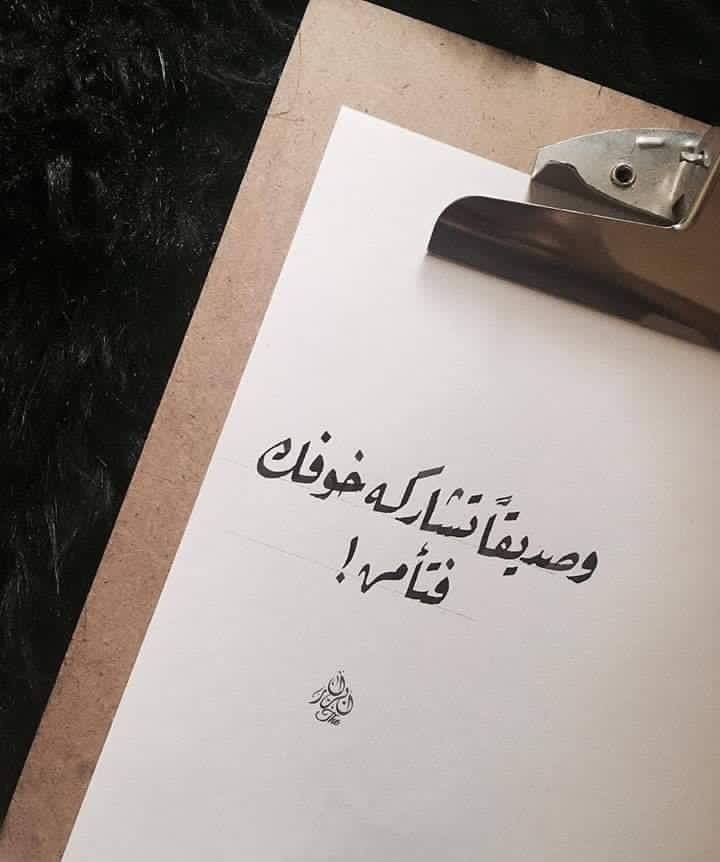 وصديقًا تشاركه خوفك
فتأمن !
The